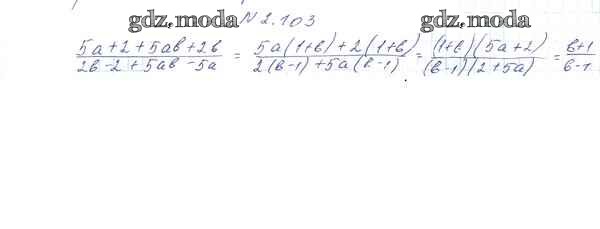 gdz.moda № 2.103 gdz.moda
(5a+2+5ab+2b)/(2b-2+5ab-5a) = (5a(1+b)+2(1+b))/(2(b-1)+5a(b-1)) = ((1+b)(5a+2))/((b-1)(2+5a)) = (b+1)/(b-1)